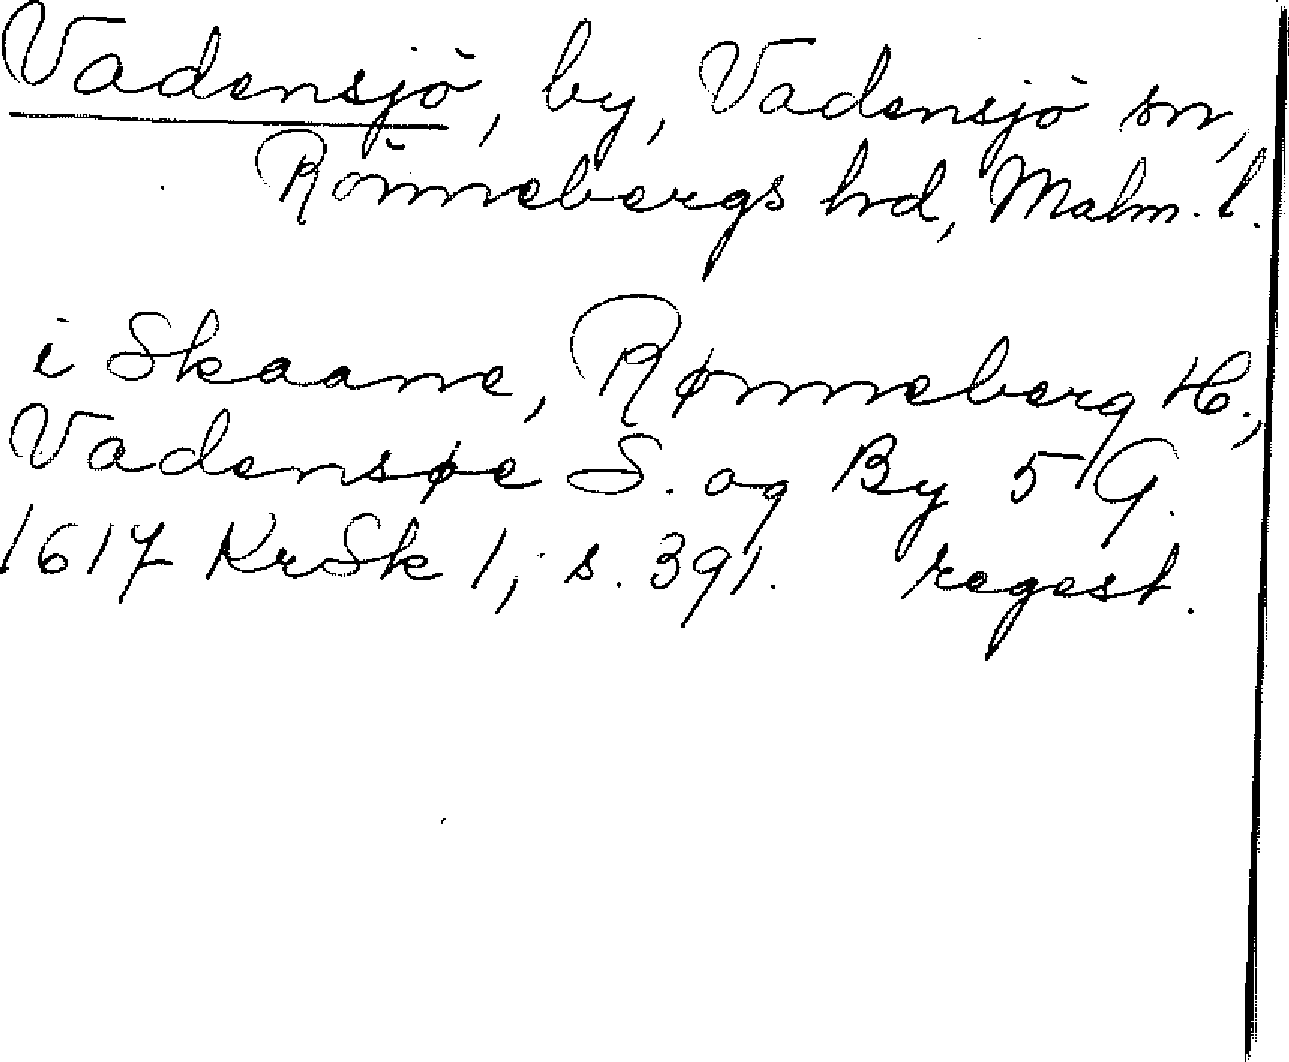 Vadensjö, by, Vadensjö sn,
Rönnebergs hd, Malm. l.
i Skaane, Rønneberg H.,
Vadensøe S. og By 5 G.
1617 KrSk 1, s. 391. regest.